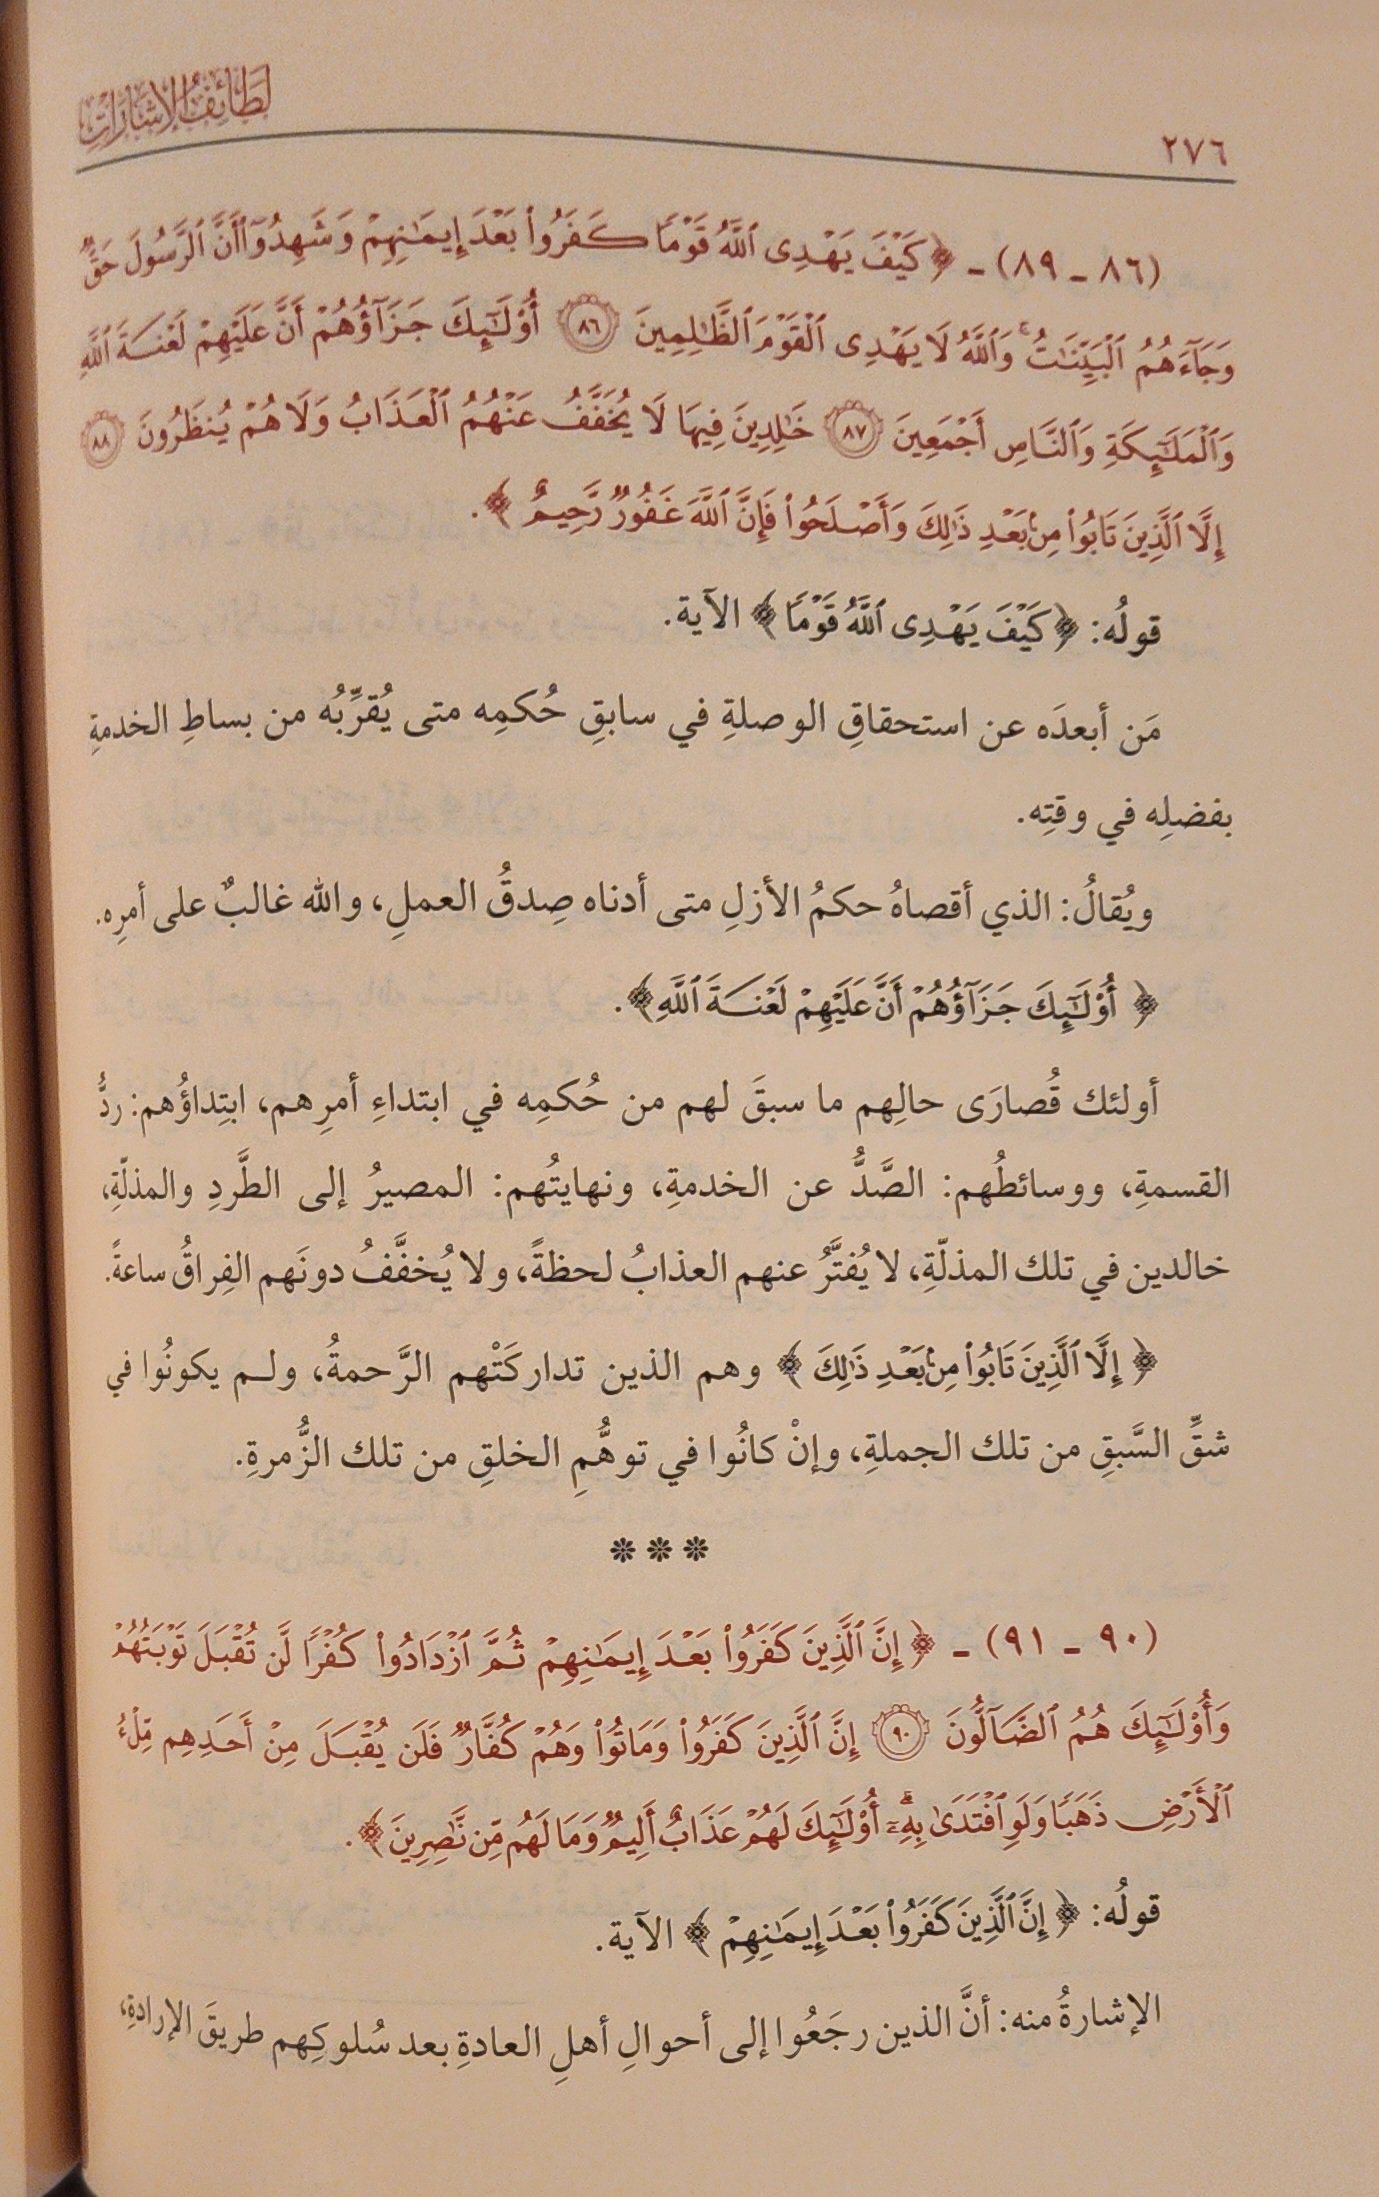 لطائف الإشارات
٢٧٦
(٨٦ ـ ٨٩) ـ ﴿ كَيْفَ يَهْدِى ٱللَّهُ قَوْمًا كَفَرُوا۟ بَعْدَ إِيمَٰنِهِمْ وَشَهِدُوٓا۟ أَنَّ ٱلرَّسُولَ حَقٌّ
وَجَآءَهُمُ ٱلْبَيِّنَٰتُ ۚ وَٱللَّهُ لَا يَهْدِى ٱلْقَوْمَ ٱلظَّٰلِمِينَ ٨٦ أُو۟لَٰٓئِكَ جَزَآؤُهُمْ أَنَّ عَلَيْهِمْ لَعْنَةَ ٱللَّهِ
وَٱلْمَلَٰٓئِكَةِ وَٱلنَّاسِ أَجْمَعِينَ ٨٧ خَٰلِدِينَ فِيهَا لَا يُخَفَّفُ عَنْهُمُ ٱلْعَذَابُ وَلَا هُمْ يُنظَرُونَ ٨٨
إِلَّا ٱلَّذِينَ تَابُوا۟ مِنۢ بَعْدِ ذَٰلِكَ وَأَصْلَحُوا۟ فَإِنَّ ٱللَّهَ غَفُورٌ رَّحِيمٌ ﴾.
قولُه: ﴿ كَيْفَ يَهْدِى ٱللَّهُ قَوْمًا ﴾ الآية.
مَن أبعدَه عن استحقاقِ الوصلةِ في سابقِ حُكمِه متى يُقرِّبُه من بساطِ الخدمةِ
بفضلِه في وقتِه.
ويُقالُ: الذي أقصاهُ حكمُ الأزلِ متى أدناه صِدقُ العملِ، والله غالبٌ على أمرِه.
﴿ أُو۟لَٰٓئِكَ جَزَآؤُهُمْ أَنَّ عَلَيْهِمْ لَعْنَةَ ٱللَّهِ ﴾.
أولئك قُصارَى حالِهم ما سبقَ لهم من حُكمِه في ابتداءِ أمرِهم، ابتِداؤُهم: ردُّ
القسمةِ، ووسائطُهم: الصَّدُّ عن الخدمةِ، ونهايتُهم: المصيرُ إلى الطَّردِ والمذلّةِ،
خالدين في تلك المذلّةِ، لا يُفتَّرُ عنهم العذابُ لحظةً، ولا يُخفَّفُ دونَهم الفِراقُ ساعةً.
﴿ إِلَّا ٱلَّذِينَ تَابُوا۟ مِنۢ بَعْدِ ذَٰلِكَ ﴾ وهم الذين تداركَتْهم الرَّحمةُ، ولم يكونُوا في
شقِّ السَّبقِ من تلك الجملةِ، وإنْ كانُوا في توهُّمِ الخلقِ من تلك الزُّمرةِ.
❊ ❊ ❊
(٩٠ ـ ٩١) ـ ﴿ إِنَّ ٱلَّذِينَ كَفَرُوا۟ بَعْدَ إِيمَٰنِهِمْ ثُمَّ ٱزْدَادُوا۟ كُفْرًا لَّن تُقْبَلَ تَوْبَتُهُمْ
وَأُو۟لَٰٓئِكَ هُمُ ٱلضَّآلُّونَ ٩٠ إِنَّ ٱلَّذِينَ كَفَرُوا۟ وَمَاتُوا۟ وَهُمْ كُفَّارٌ فَلَن يُقْبَلَ مِنْ أَحَدِهِم مِّلْءُ
ٱلْأَرْضِ ذَهَبًا وَلَوِ ٱفْتَدَىٰ بِهِۦٓ ۗ أُو۟لَٰٓئِكَ لَهُمْ عَذَابٌ أَلِيمٌ وَمَا لَهُم مِّن نَّٰصِرِينَ ﴾.
قولُه: ﴿ إِنَّ ٱلَّذِينَ كَفَرُوا۟ بَعْدَ إِيمَٰنِهِمْ ﴾ الآية.
الإشارةُ منه: أنَّ الذين رجَعُوا إلى أحوالِ أهلِ العادةِ بعد سُلوكِهم طريقَ الإرادةِ،